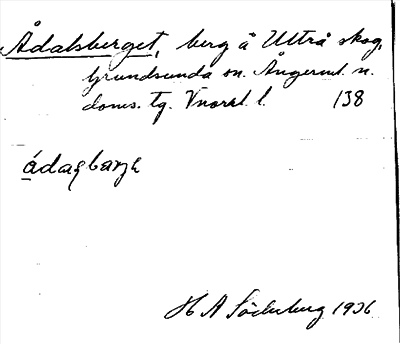 Ådalsberget, berg å Ultrå skog,
Grundsunda sn. Ångerml. n.
doms. tg. Vnorrl. l. 138
ádagbarjh
H A Söderberg 1936